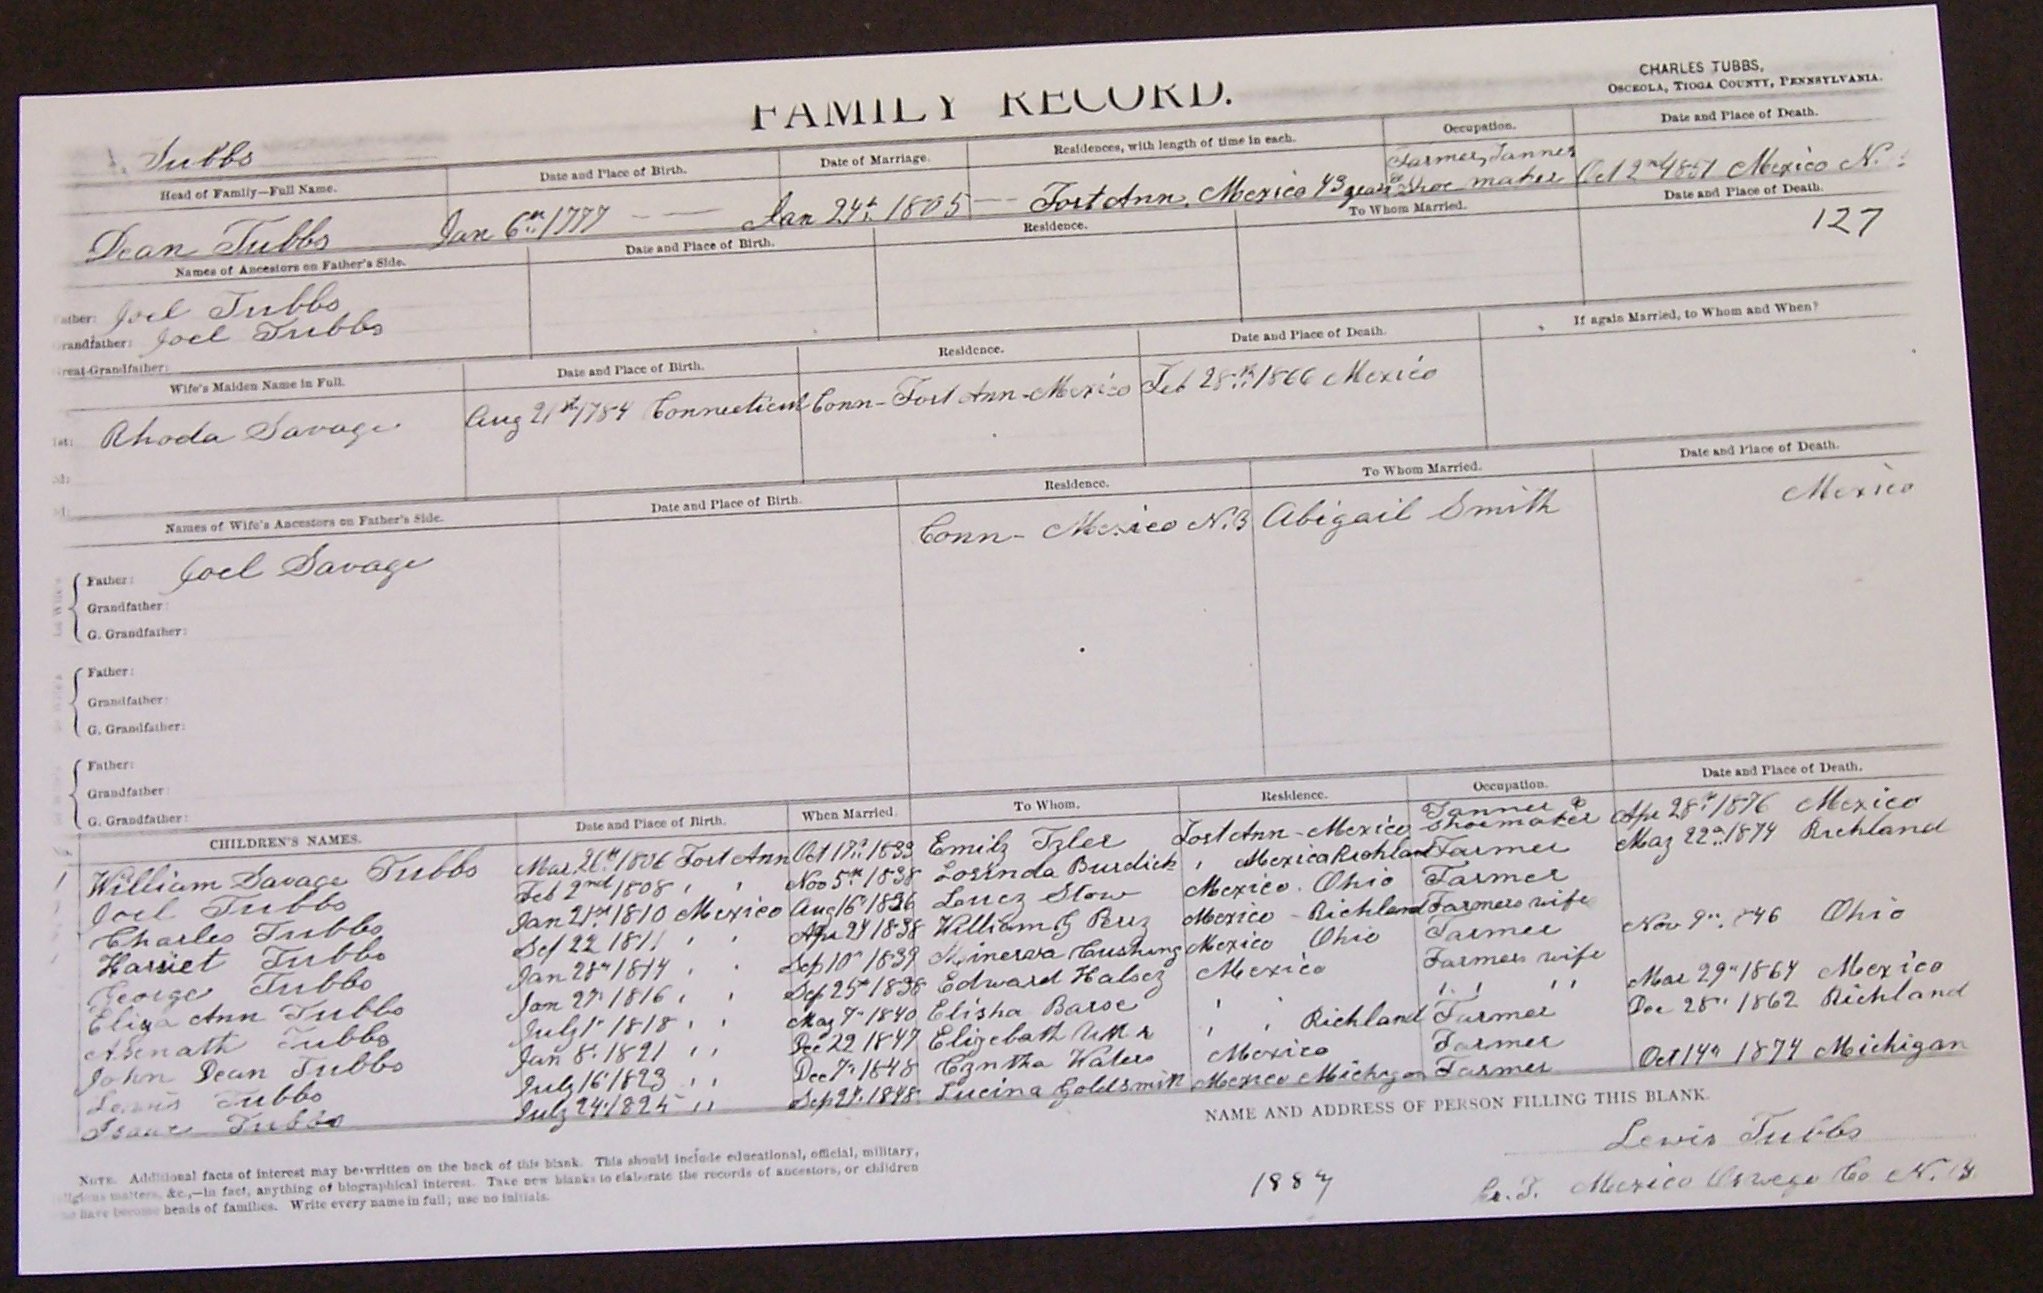 FAMILY RECORD.
CHARLES TUBBS,
OSCEOLA, TIOGA COUNTY, PENNSYLVANIA.
Tubbs
Head of Family—Full Name. Date and Place of Birth. Date of Marriage. Residences, with length of time in each. Occupation. Date and Place of Death.
Dean Tubbs Jan 6th 1777 — — Jan 24th 1805 — Fort Ann, Mexico 43 years Farmer, Tanner & Shoe maker Oct 2nd 1851 Mexico N.
Names of Ancestors on Father's Side. Date and Place of Birth. Residence. To Whom Married. Date and Place of Death.
127
ather: Joel Tubbs
randfather: Joel Tubbs
reat-Grandfather:
Wife's Maiden Name in Full. Date and Place of Birth. Residence. Date and Place of Death. If again Married, to Whom and When?
1st: Rhoda Savage Aug 21st 1784 Connecticut Conn - Fort Ann - Mexico Feb 28th 1866 Mexico
Names of Wife's Ancestors on Father's Side. Date and Place of Birth. Residence. To Whom Married. Date and Place of Death.
Father: Joel Savage Conn - Mexico N.Y Abigail Smith Mexico
Grandfather:
G. Grandfather:
Father:
Grandfather:
G. Grandfather:
Father:
Grandfather:
G. Grandfather:
CHILDREN'S NAMES. Date and Place of Birth. When Married. To Whom. Residence. Occupation. Date and Place of Death.
William Savage Tubbs Mar. 26th 1806 Fort Ann Oct 17th 1833 Emily Tyler Fort Ann - Mexico Tanner & Shoemaker Apr 28th 1876 Mexico
Joel Tubbs Feb 2nd 1808 " " Nov 5th 1838 Losinda Burdick " Mexico Richland Farmer May 22nd 1874 Richland
Charles Tubbs Jan 21st 1810 Mexico Aug 16 1836 Lucy Stow Mexico. Ohio Farmer
Harriet Tubbs Sep 22 1811 " " Apr 24 1838 William G Mexico - Richland Farmers wife
George Tubbs Jan 28th 1814 " " Sep 10th 1839 Minerva Cushing Mexico Ohio Farmer Nov 9th 46 Ohio
Eliza Ann Tubbs Jan 27 1816 " " Sep 25th 1838 Edward Halsey Mexico Farmers wife
Asenath Tubbs July 1st 1818 " " May 7th 1840 Elisha " " " " Mar 29th 1864 Mexico
John Dean Tubbs Jan 8th 1821 " " Dec 22 1847 Elizebath " " Richland Farmer Dec 28th 1862 Richland
Lewis Tubbs July 16 1823 " " Dec 7th 1848 Cyntha Waters Mexico Farmer
Isaac Tubbs July 24 1825 " " Sep 27 1848 Lucina Goldsmith Mexico Michigan Farmer Oct 14th 1874 Michigan
NAME AND ADDRESS OF PERSON FILLING THIS BLANK.
Lewis Tubbs
1887 Mexico Oswego Co N.Y.
NOTE. Additional facts of interest may be written on the back of this blank. This should include educational, official, military,
religious matters, &c.,—in fact, anything of biographical interest. Take new blanks to elaborate the records of ancestors, or children
who have become heads of families. Write every name in full; use no initials.